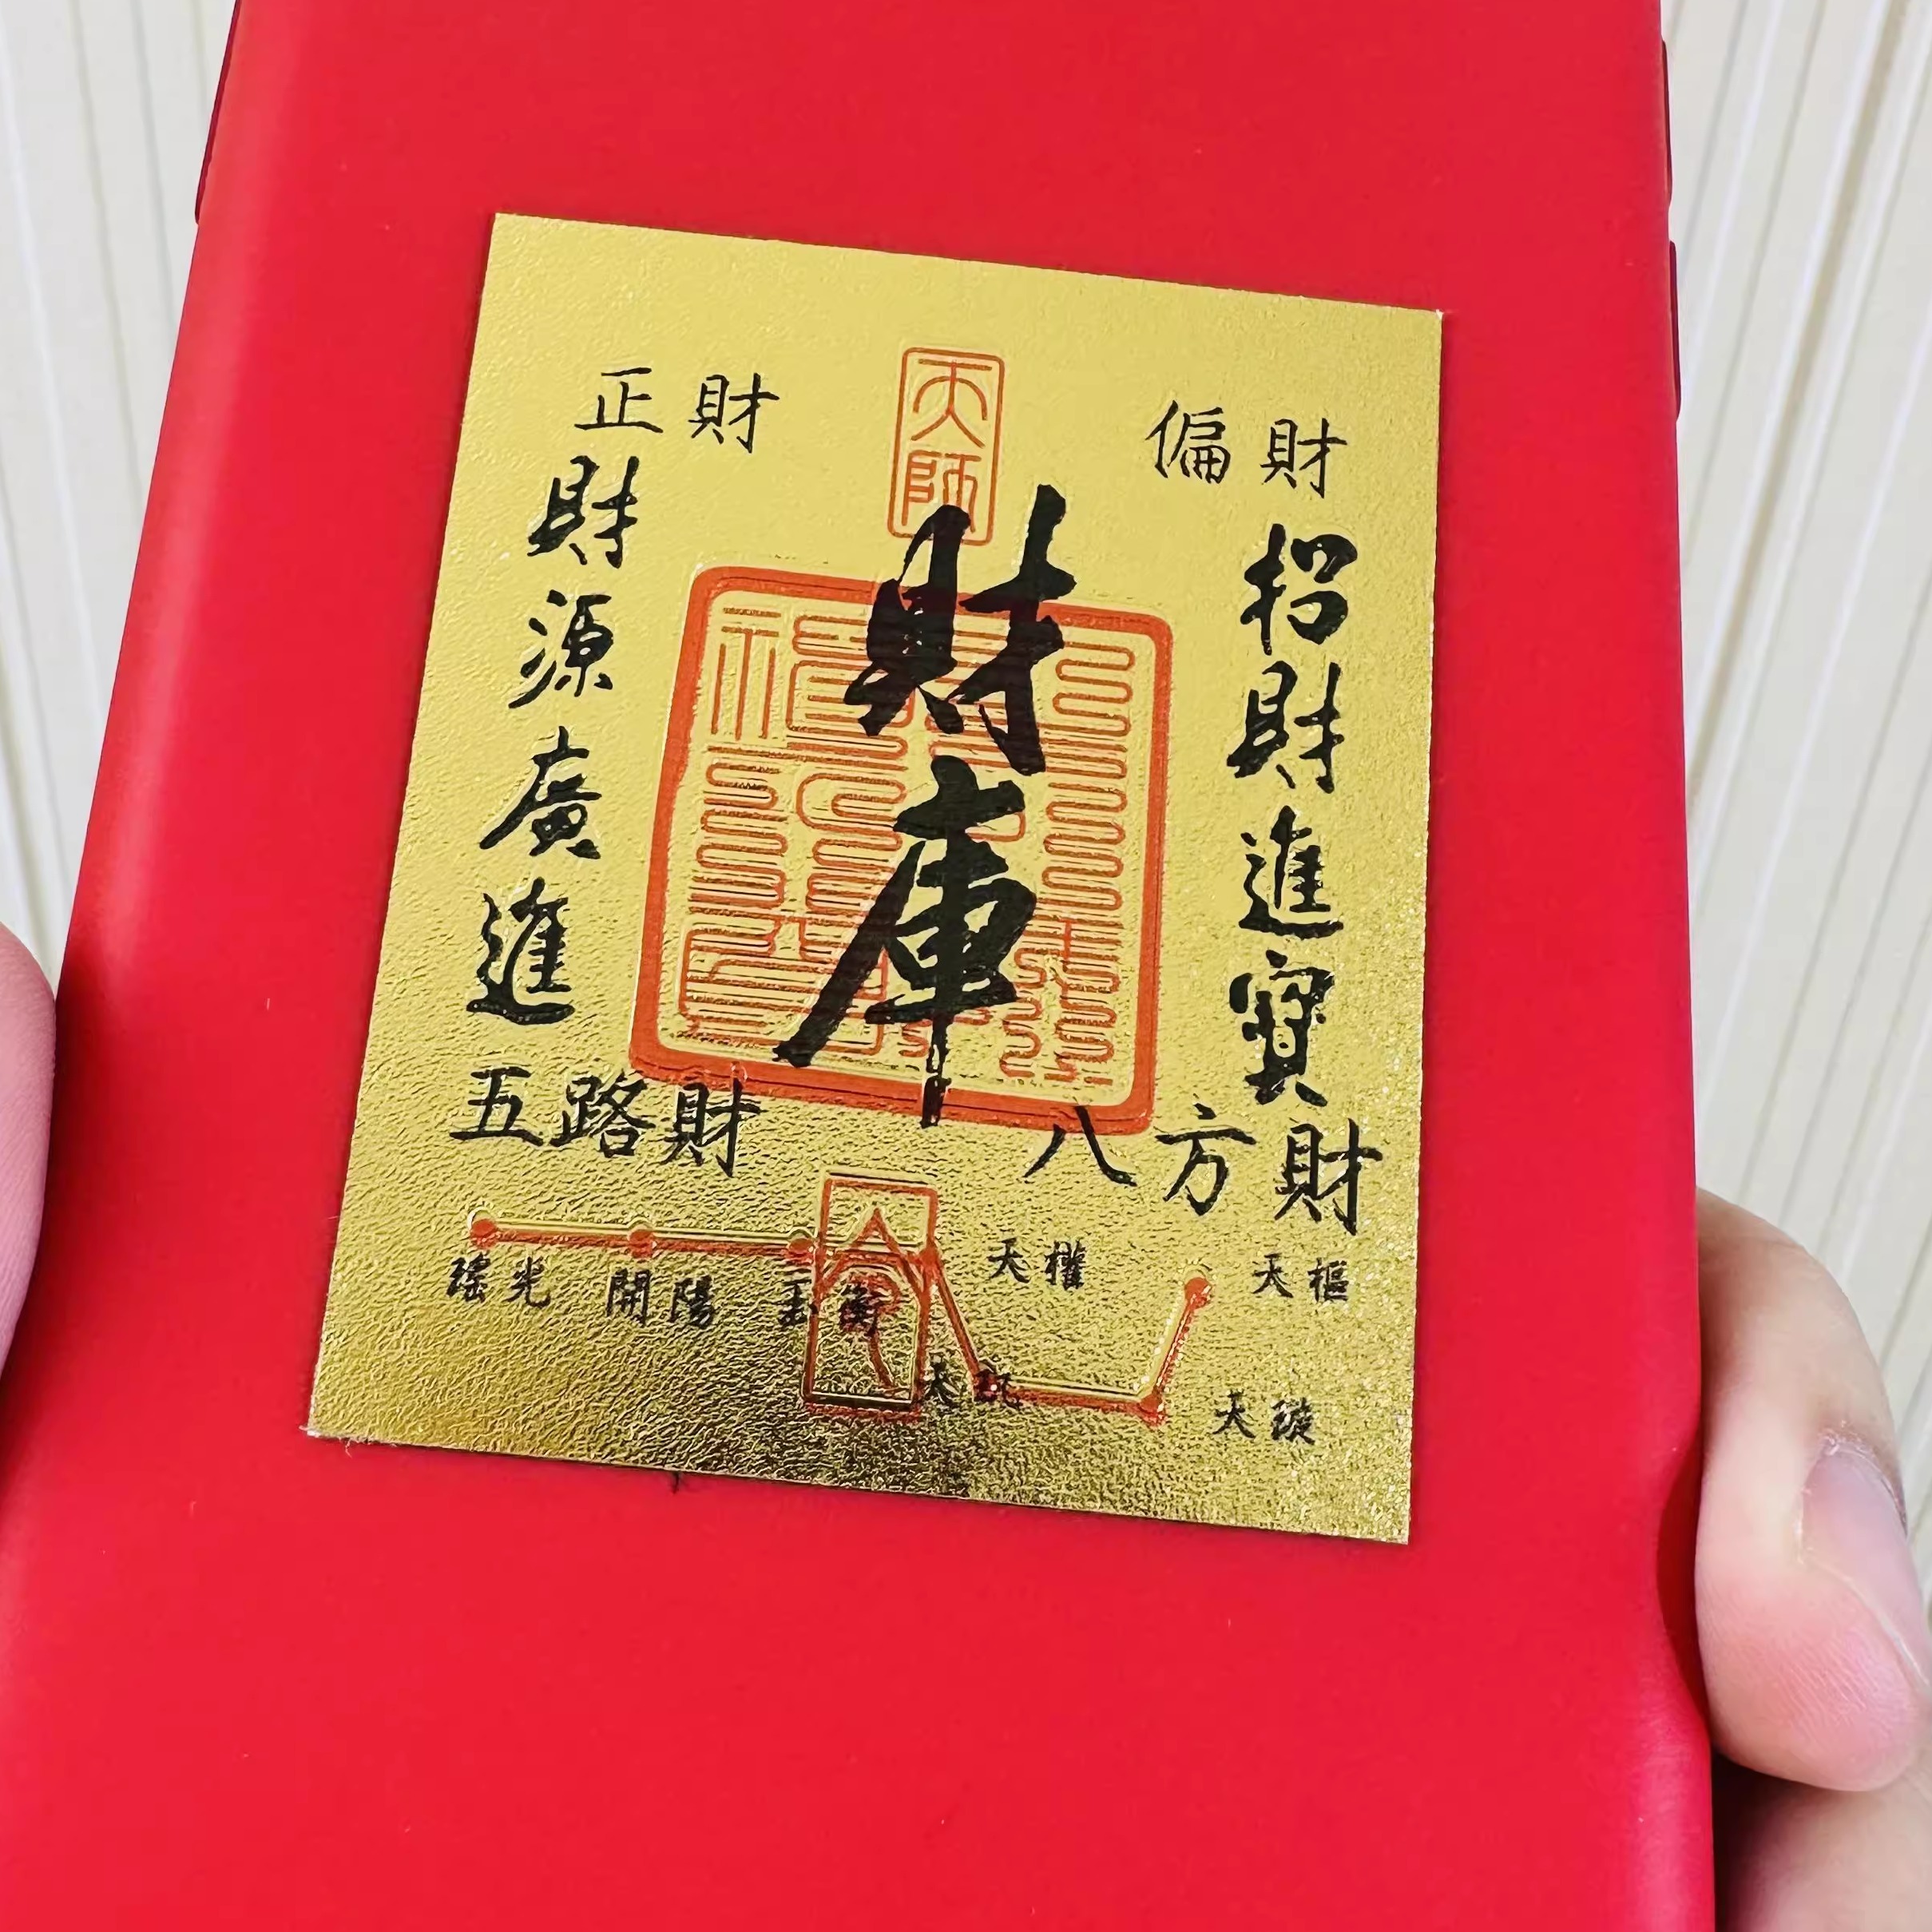 正財
偏財
天師
財源廣進
財庫
招財進寶
五路財
八方財
瑤光
開陽
玉衡
天權
天樞
天璇